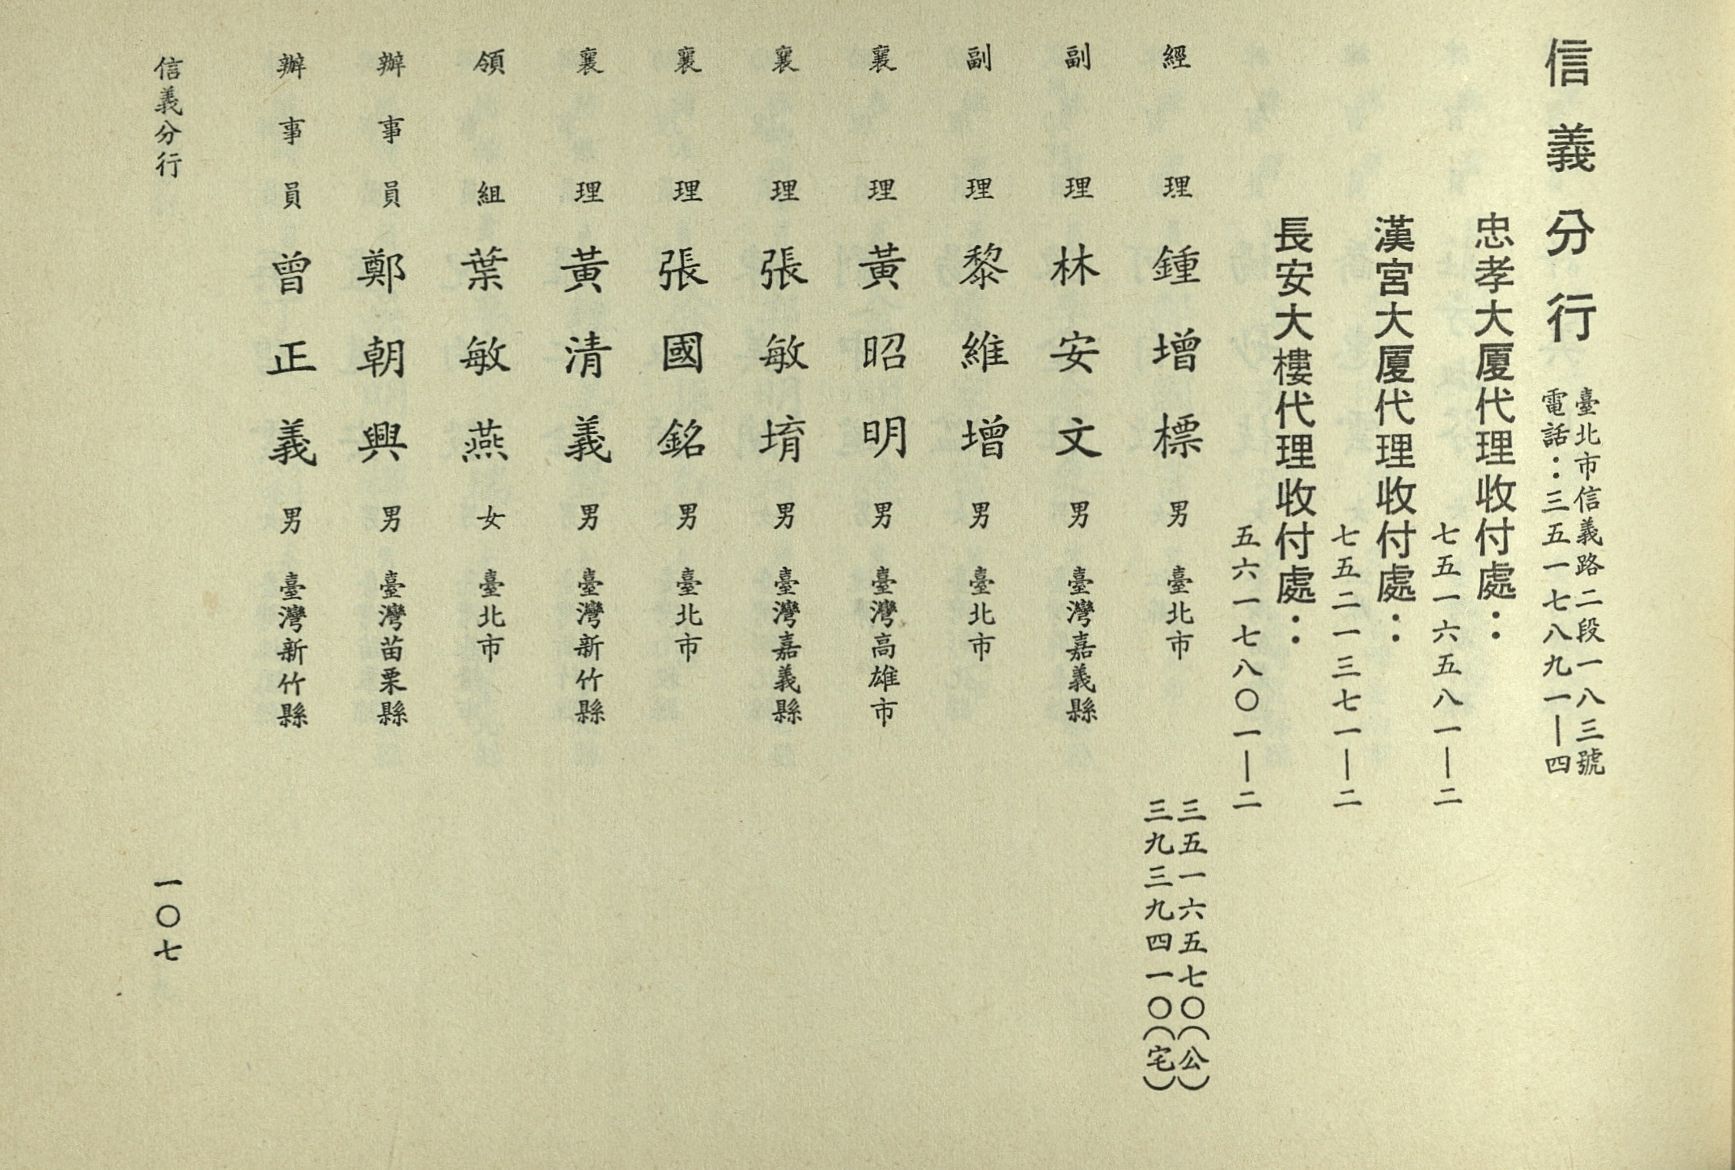 信義分行
臺北市信義路二段一八三號
電話：三五一七八九一—四
忠孝大厦代理收付處：
七五一六五八一—二
漢宮大厦代理收付處：
七五二一三七一—二
長安大樓代理收付處：
五六一七八〇一—二
經理 鍾增標 男 臺北市 三五一六五七〇(公)
三九三九四一〇(宅)
副理 林安文 男 臺灣嘉義縣
副理 黎維增 男 臺北市
襄理 黃昭明 男 臺灣高雄市
襄理 張敏堉 男 臺灣嘉義縣
襄理 張國銘 男 臺北市
襄理 黃清義 男 臺灣新竹縣
領組 葉敏燕 女 臺北市
辦事員 鄭朝興 男 臺灣苗栗縣
辦事員 曾正義 男 臺灣新竹縣
信義分行 一〇七